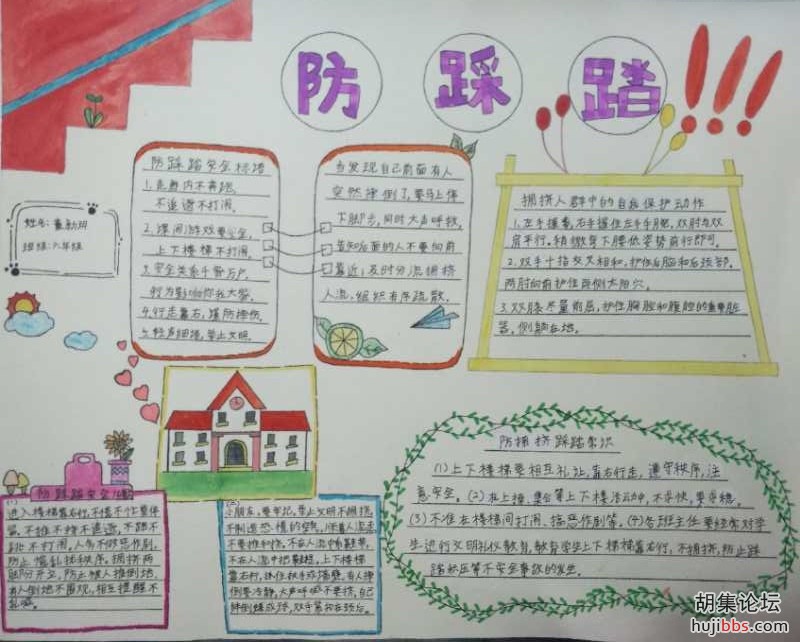 防踩踏!!!
姓名:
班级:六年级
防踩踏安全标语
1.走廊内不奔跑,
不追逐不打闹。
2.课间游戏要安全,
上下楼梯不打闹。
3.安全关系千万户,
行为影响你我大家。
4.行走靠右,谨防撞伤。
5.轻声细语,举止文明。
当发现自己前面有人
突然摔倒了,要马上停
下脚步,同时大声呼救,
告知后面的人不要向前
靠近,及时分流拥挤
人流,组织有序疏散。
拥挤人群中的自我保护动作
1.左手握拳,右手握住左手手腕,双肘与双
肩平行。稍微弯下腰低姿势前行即可。
2.双手十指交叉相扣,护住后脑和后颈部。
两肘向前护住两侧太阳穴。
3.双膝尽量前屈,护住胸腔和腹腔的重要脏
器,侧躺在地。
防踩踏安全儿歌
(1)
进入楼梯靠右行,
不推不搡不追逐,不跳不
趴不打闹,人多不做恶作剧,
防止慌乱
有人倒地不围观,相互提醒不
乱喊。
(2)
小朋友,要牢记,举止文明不拥挤,
不制造恐慌的空气,
不要推和挤。不在人流中
不在人流中把鞋提,上下楼梯
靠右行,抓住扶手或墙壁,有人摔
倒要冷静,大声呼喊不要挤,自己
摔倒蜷成球,双手紧扣在颈后。
防拥挤踩踏常识
(1)上下楼梯要相互礼让,靠右行走,遵守秩序,注
意安全。(2)在上操、集合等上下楼活动中,不求快,要求稳。
(3)不准在楼梯间打闹、搞恶作剧等。(4)各班主任要经常对学
生进行文明礼仪教育,教育学生上下楼梯靠右行,不拥挤,防止踩
踏和压等不安全事故的发生。
胡集论坛
hujibbs.com